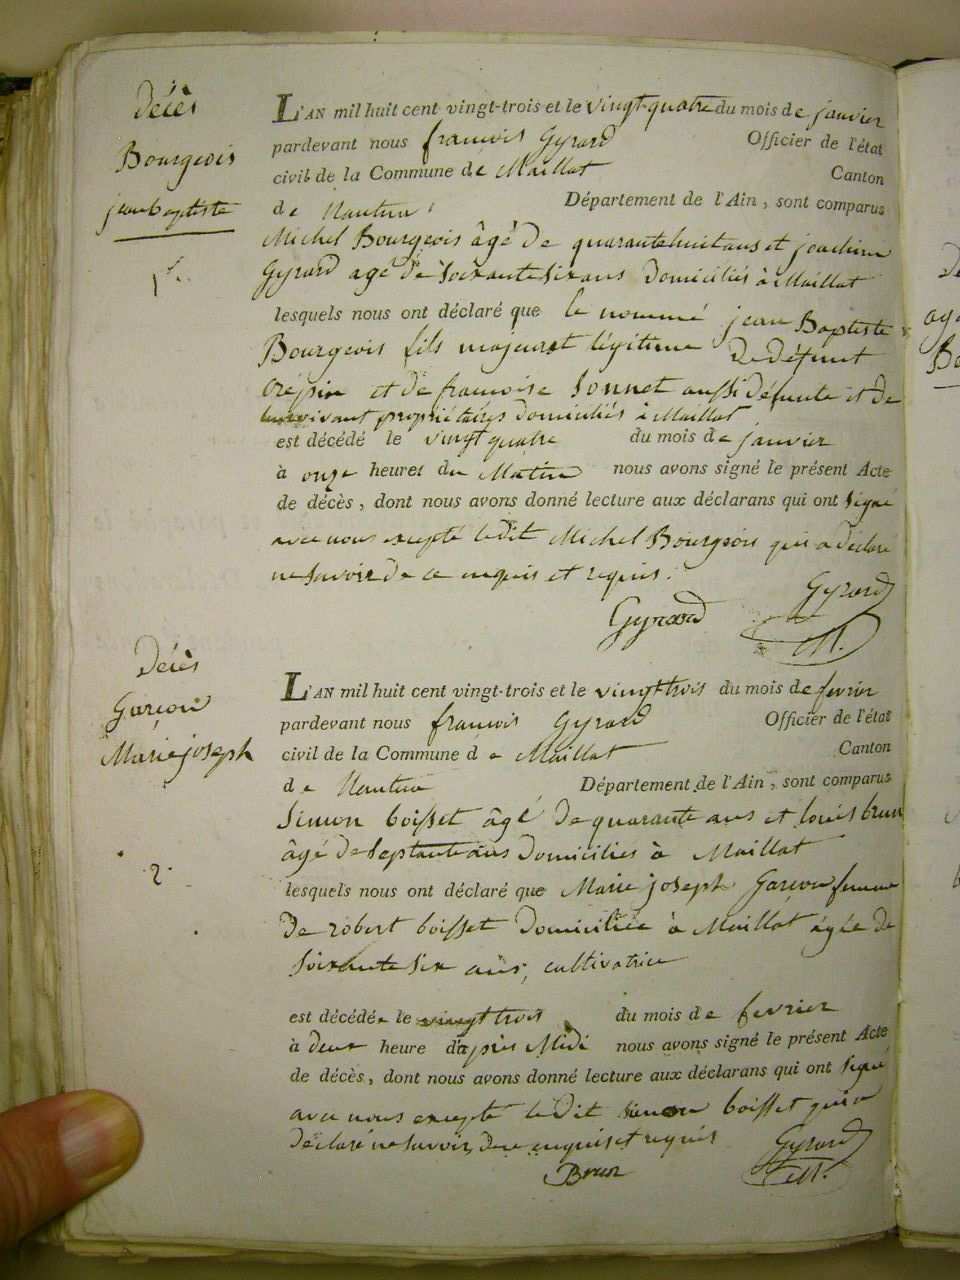 Décès
Bourgeois
jeanbaptiste
1r.
L'AN mil huit cent vingt-trois et le vingt-quatre du mois de janvier
pardevant nous françois Gyrard Officier de l'état
civil de la Commune de Maillat Canton
de Nantua Département de l'Ain, sont comparus
Michel Bourgeois âgé de quarantehuit ans et joachim
Gyrard agé de soixantesix ans Domiciliés à Maillat
lesquels nous ont déclaré que le nommé jean Baptiste
Bourgeois fils majeur et légitime De défunt
Crépin et de françoise Sonnet aussi défunte et de
vivant propriétaires domiciliés à Maillat
est décédé le vingt quatre du mois de janvier
à onze heures du Matin nous avons signé le présent Acte
de décès, dont nous avons donné lecture aux déclarans qui ont signé
avec nous excepté ledit Michel Bourgeois qui a déclaré
ne savoir De ce enquis et requis.
Gyrard Gyrard
M.
Décès
Garçon
Marie joseph
2.
L'AN mil huit cent vingt-trois et le vingt trois du mois de fevrier
pardevant nous françois Gyrard Officier de l'état
civil de la Commune de Maillat Canton
de Nantua Département de l'Ain, sont comparus
Simon boisset âgé De quarante ans et louis brun
âgé de septante ans Domiciliés à Maillat
lesquels nous ont déclaré que Marie joseph Garçon femme
De robert boisset Domiciliée à Maillat âgée de
soixante six ans, cultivatrice
est décédée le vingt trois du mois de fevrier
à deux heure d'après Midi nous avons signé le présent Acte
de décès, dont nous avons donné lecture aux déclarans qui ont signé
avec nous excepté ledit simon boisset qui a
déclaré ne savoir, de ce enquis et requis
Brun Gyrard
M.